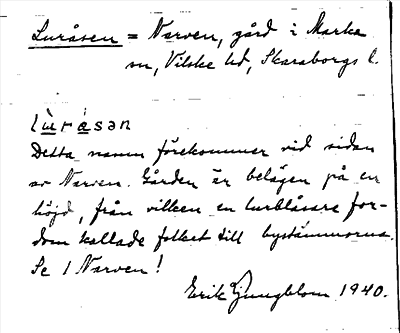 Luråsen = Narven, gård i Marka
sn, Vilske hd, Skaraborgs l.
lùråsən
Detta namn förekommer vid sidan
av Narven. Gården är belägen på en
höjd, från vilken en lurblåsare for-
dom kallade folket till bystämmorna.
Se 1 Narven!
Erik Ljungblom 1940.